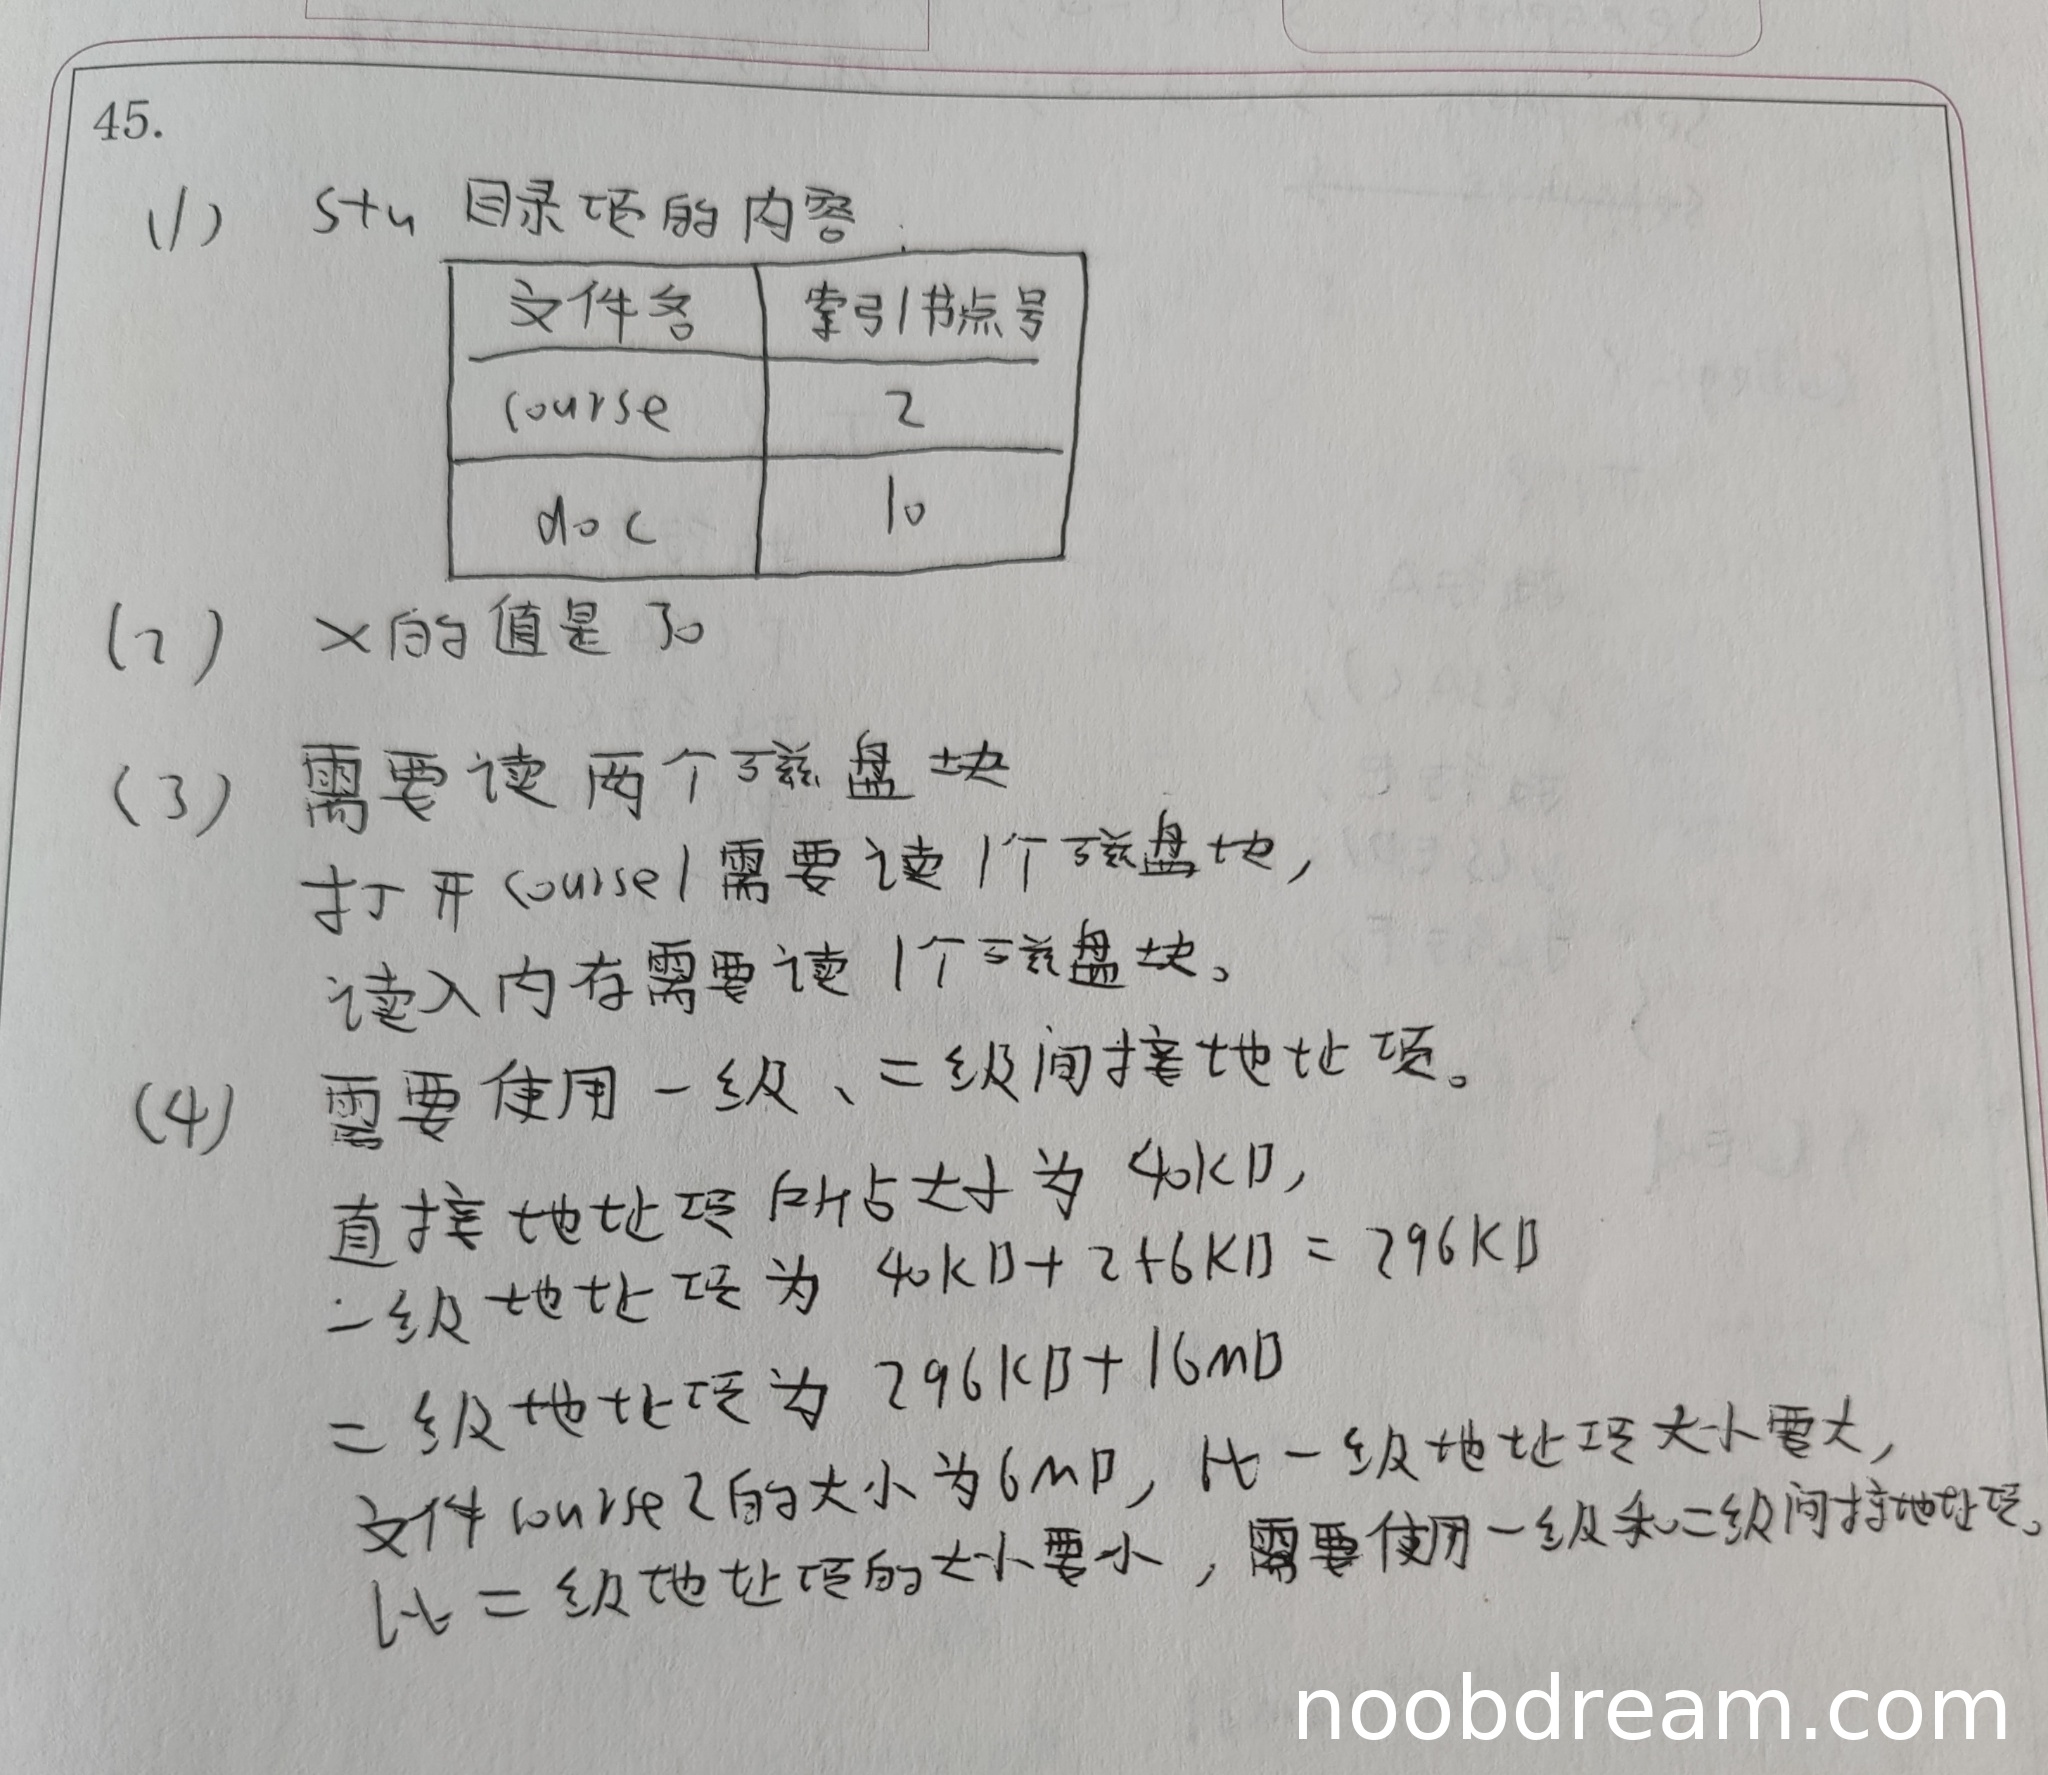 45.
(1) stu 目录项的内容
文件名 索引节点号
course 2
doc 10
(2) x的值是30
(3) 需要读两个磁盘块
打开course1需要读1个磁盘地,
读入内存需要读1个磁盘块。
(4) 需要使用一级、二级间接地址项。
直接地址项所占大小为 40KB,
一级地址项为 40KB+256KB=296KB
二级地址项为 296KB+16MB
文件course2的大小为6MB, 比一级地址项大小要大,
比二级地址项的大小要小, 需要使用一级和二级间接地址项。
noobdream.com